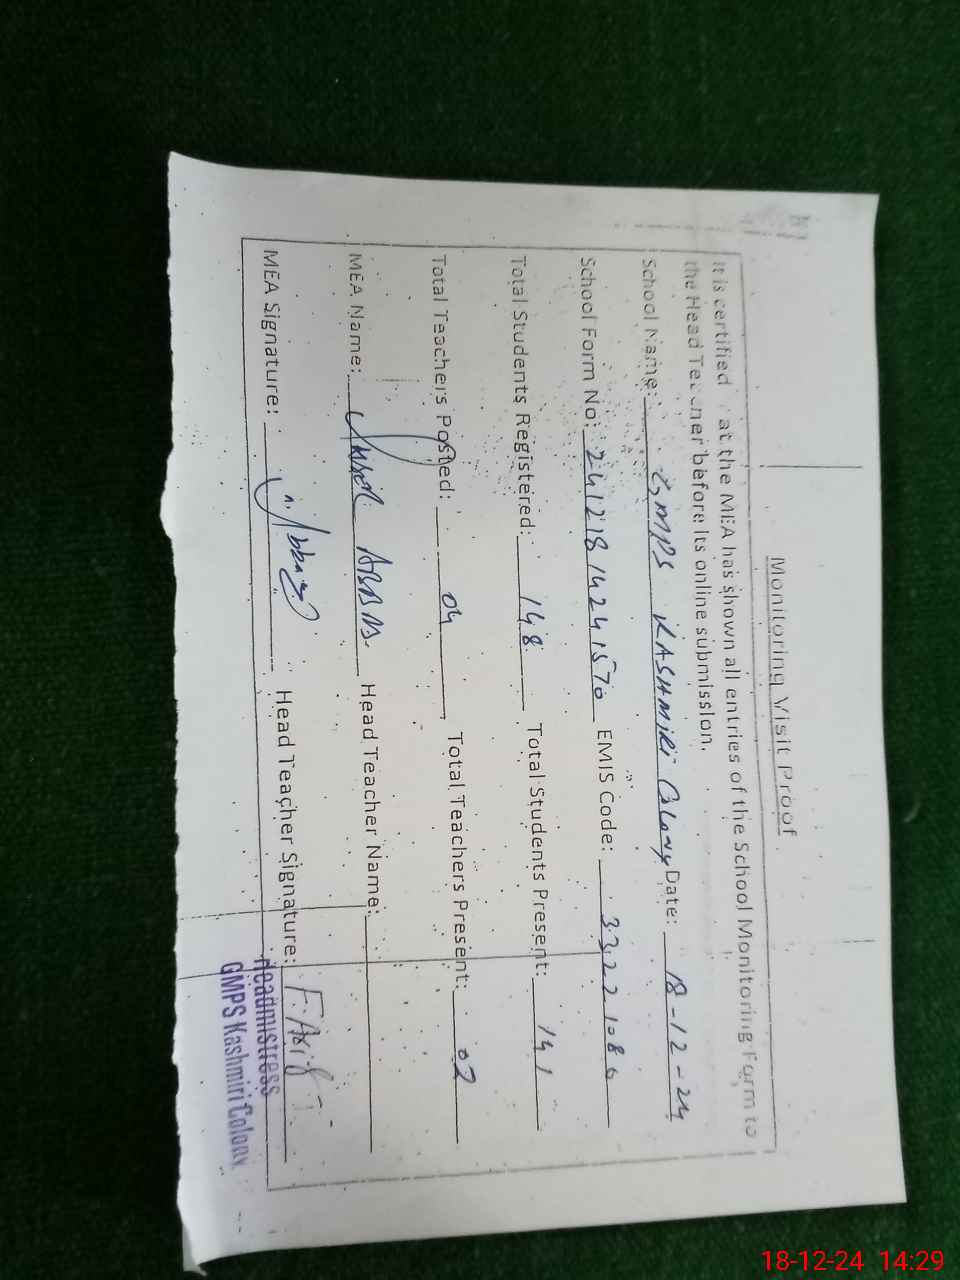 Monitoring Visit Proof
It is certified at the MEA has shown all entries of the School Monitoring Form to
the Head Teacher before its online submission.
School Name: GMPS KASHMIRI Colony Date: 18-12-24
School Form No: 24121814241570 EMIS Code: 33221086
Total Students Registered: 148 Total Students Present: 141
Total Teachers Posted: 04 Total Teachers Present: 02
MEA Name: ABBAS Head Teacher Name:
MEA Signature: Abbas Head Teacher Signature: F. Asif
Headmistress
GMPS Kashmiri Colony
18-12-24 14:29